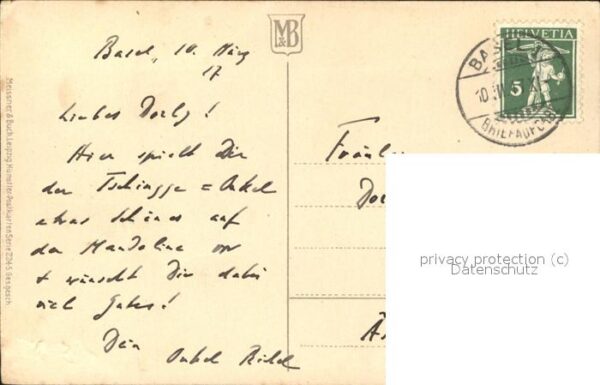 Basel, 10. März
17
Liebes Dorly!
Hier spielt Dir
der Tschingge = Onkel
etwas Schönes auf
der Mandoline vor
+ wünscht Dir dabei
viel Gutes!
Dein
Onkel
Fräulein
M&B
HELVETIA
5
BASEL
10
BRIEFAUFGABE
Meissner & Buch, Leipzig Künstler-Postkarten Serie 2345 Ges. gesch.
privacy protection (c)
Datenschutz